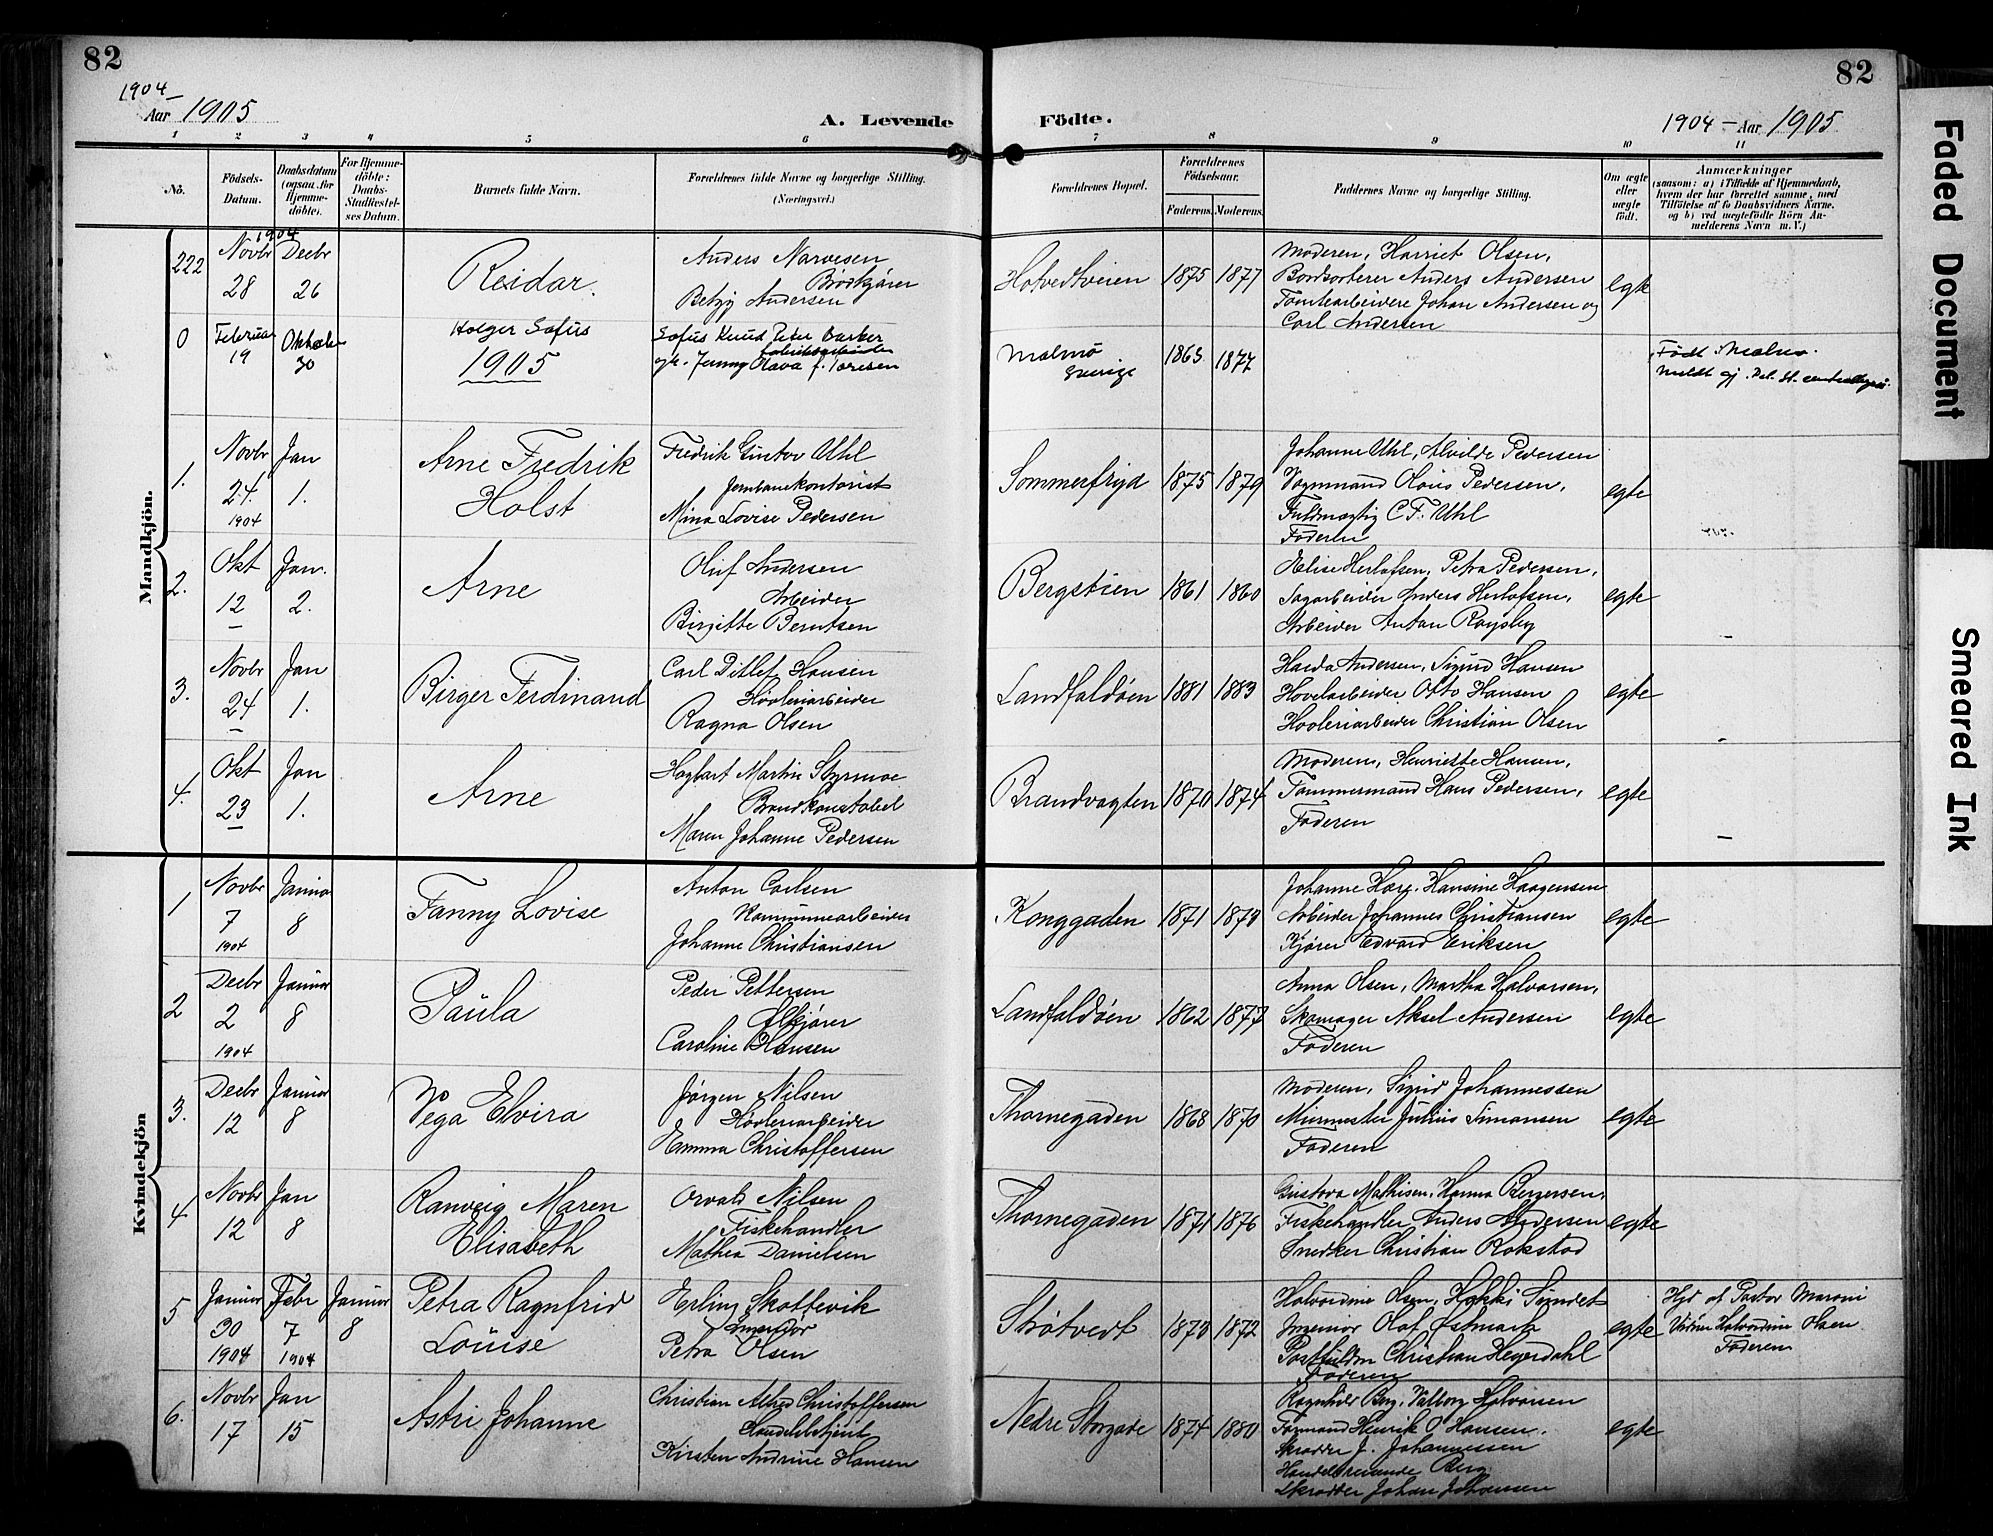 82
82
1904 -
Aar 1905
A. Levende
Födte.
1904 - Aar 1905
1
2
3
4
5
6
7
8
9
10
11
No.
Födsels-
Datum.
Daabsdatum
(ogsaa for
Hjemme-
döbte).
For Hjemme-
döbte:
Daabs-
Stadfæstel-
ses Datum.
Barnets fulde Navn.
Forældrenes fulde Navne og borgerlige Stilling.
(Næringsvei.)
Forældrenes Bopæl.
Forældrenes
Födselsaar.
Faderens.
Moderens.
Faddernes Navne og borgerlige Stilling.
Om ægte
eller
uægte
födt.
Anmærkninger
(saasom: a) i Tilfælde af Hjemmedaab,
hvem der har forrettet samme, med
Tilföielse af to Daabsvidners Navne,
og b) ved uægtefödte Börn An-
melderens Navn m. V.)
Mandkjön.
222
1904
Novbr
28
Decbr
26
Reidar.
Anders Narvesen
Brødkjører
Betzy Andersen
Hotvedtveien
1875
1877
Moderen, Harriet Olsen,
Bordsorterer Anders Andersen
Tomtearbeidere Johan Andersen og
Carl Andersen
egte
0
Februar
19
Oktober
30
Holger Sofus
1905
Sofus Knud Peter Barker
Fabrikarbeider
og Jenny Olava f. Toresen
Malmø
Sverige
1863
1877
Født i Malmø.
meldt
1.
Novbr
24.
1904
Jan
1.
Arne Fredrik
Holst
Fredrik Gustav Uhl
Jernbanekontorist
Mina Lovise Pedersen
Sommerfryd
1875
1879
Johanne Uhl, Alvilde Pedersen
Vognmand Olaus Pedersen,
Fuldmægtig C F. Uhl
Faderen
egte
2.
Okt
12
Jan.
2.
Arne
Oluf Andersen
Arbeider
Birgitte Berntsen
Bergstien
1861
1860
Elise Herlofsen, Petra Pedersen,
Sagarbeider Anders Herlofsen,
Arbeider Anton
egte
3.
Novbr
24
Jan
1.
Birger Ferdinand
Carl Ditlef Hansen
Høvleriarbeider
Ragna Olsen
Landfaldøen
1881
1883
Harda Andersen, Sigurd Hansen
Høvelarbeider Otto Hansen
Høvleriarbeider Christian Olsen
egte
4.
Okt
23
Jan
1.
Arne
Hagbart Martin Styrmoe
Brandkonstabel
Maren Johanne Pedersen
Brandvagten
1870
1874
Moderen, Henriette Hansen,
Tømmermand Hans Pedersen,
Faderen
egte
Kvindekjön
1
Novbr
7
1904
Januar
8
Fanny Lovise
Anton Carlsen
Kommunearbeider
Johanne Christiansen
Konggaden
1871
1873
Johanne Hansine Haagensen
Arbeider Johannes Christiansen
Kjører Edvard Eriksen
egte
2
Decbr
2
1904
Januar
8
Paula
Peder Pettersen
Ølkjører
Caroline Hansen
Landfaldøen
1862
1877
Anna Olsen, Martha Halvorsen,
Skomager Aksel Andersen
Faderen
egte
3.
Decbr
12
Januar
8
Vega Elvira
Jørgen Nilsen
Høvleriarbeider
Emma Christoffersen
Thornegaden
1868
1870
Moderen, Sigrid Johannessen
Murmester Julius Simonsen
Faderen
egte
4
Novbr
12
Jan
8
Ranveig Maren
Elisabeth
Orvald Nilsen
Fiskehandler
Mathea Danielsen
Thornegaden
1871
1876
Gustava Mathisen, Hanna Børgersen,
Fiskehandler Anders Andersen
Snedker Christian Rokstad
egte
5
Januar
30
1904
Febr
7
1904
Januar
8
Petra Ragnfrid
Louise
Erling Skottevik
Petra Olsen
Strøtvedt
1873
1872
Halvordine Olsen, Hakki Sundet
Olaf Østmark
Christian Heyerdahl
Faderen
egte
Hjd af Pastor Maroni
Vidner Halvordine Olsen
Faderen
6.
Novbr
17
Jan
15
Astri Johanne
Christian Alfred Christoffersen
Handelsbetjent
Kirsten Andrine Hansen
Nedre Storgade
1874
1880
Ragnhild Berg, Valborg Halvorsen
Formand Henrik O Hansen,
Skrædder J. Johannessen
Handelsreisende Berg
Skrædder Johan Johansen
egte
Faded Document
Smeared Ink